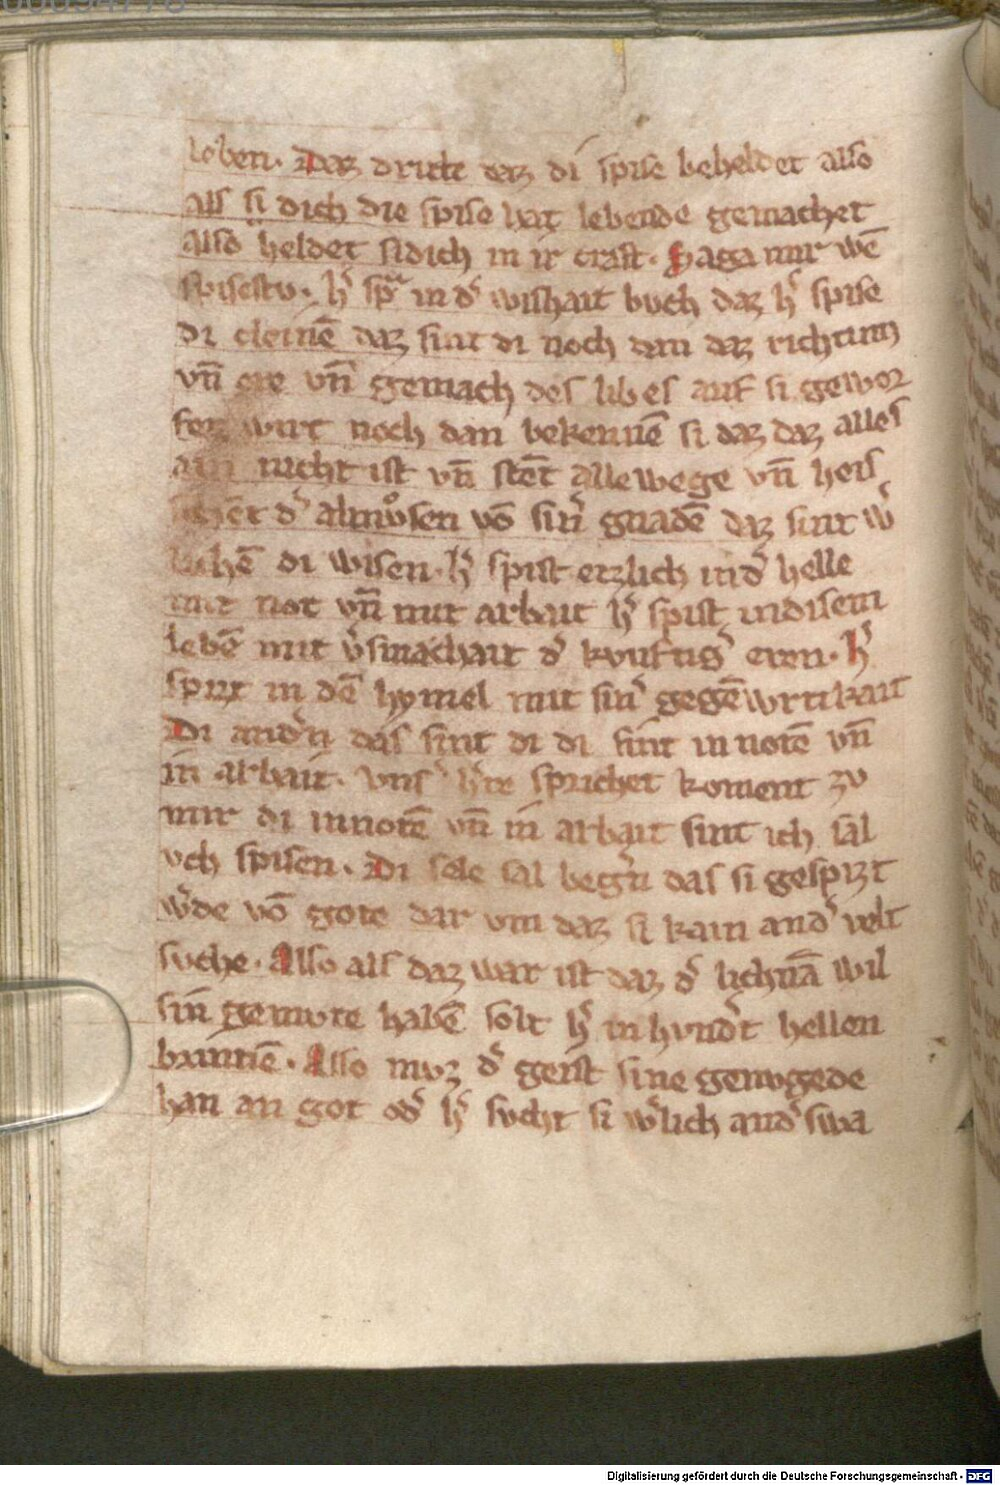 leben. Daz dritte daz di spise beheldet also
als si dich die spise hat lebende gemachet
also heldet sidich in ir craft. Saga mir wē
spisestu. h̓ spͣ in d̓ wishait buch daz h̓ spise
di cleinē daz sint di noch dan daz richtum
vn̄ ere vn̄ gemach des libes auf si gewor
fen wirt noch dan bekennē si daz daz alles
ain nicht ist vn̄ stēt allewege vn̄ heis
schēt d̓ almůsen vō sin̓ gnadē daz sint w̓
lichē di wisen. h̓ spist etzlich in d̓ helle
mit not vn̄ mit arbait h̓ spist indisem
lebē mit v̓smachait d̓ kvnftig̓ eren. h̓
spizt in dē hymel mit sin̓ gegēwrtikait
Di and̓n das sint di di sint in notē vn̄
in arbait. vns̓ h̓re sprichet koment zv
mir di innotē vn̄ in arbait sint ich sal
vch spisen. Di sele sal beg̓n das si gespizt
w̓de vō gote dar vm daz si kain and̓ velt
svche. Also als daz war ist daz d̓ lichnā wil
sin genvte habē solt h̓ in hvnd̓t hellen
brinnē. Also mvz d̓ geist sine genvgede
han an got od̓ h̓ svcht si w̓lich and̓swa
Digitalisierung gefördert durch die Deutsche Forschungsgemeinschaft - DFG